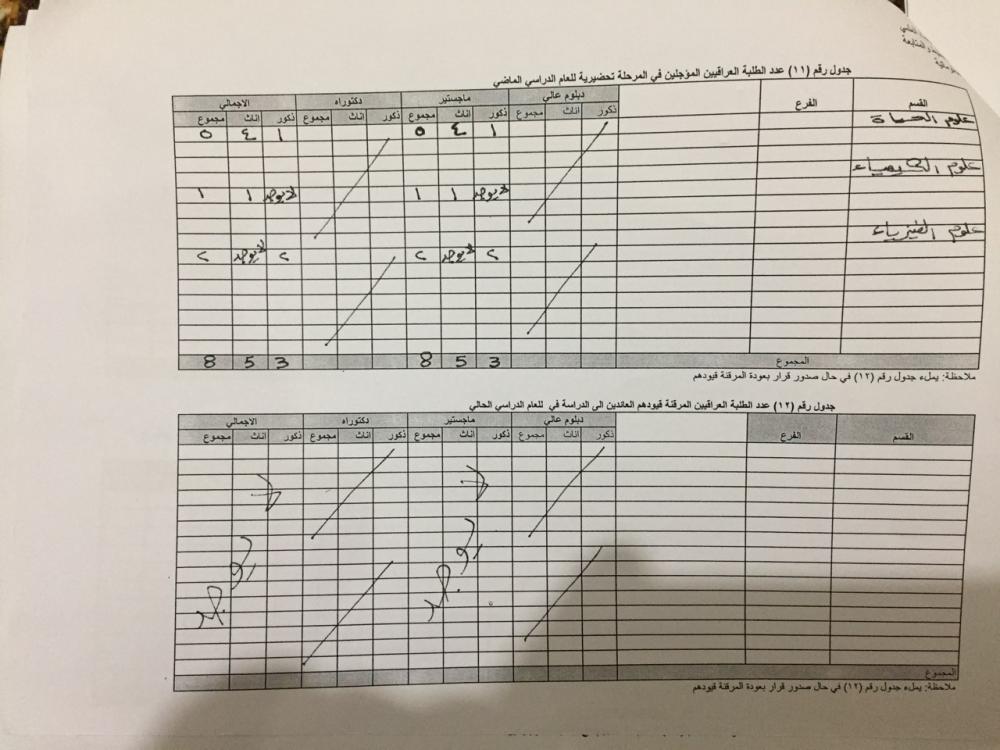 جدول رقم (١١) عدد الطلبة العراقيين المؤجلين في المرحلة تحضيرية للعام الدراسي الماضي
القسم الفرع دبلوم عالي ماجستير دكتوراه الاجمالي
ذكور اناث مجموع ذكور اناث مجموع ذكور اناث مجموع ذكور اناث مجموع
علوم الحياة ١ ٤ ٥ ١ ٤ ٥
علوم الكيمياء
لا يوجد ١ ١ لا يوجد ١ ١
علوم الفيزياء
٢ لا يوجد ٢ ٢ لا يوجد ٢
المجموع 3 5 8 3 5 8
ملاحظة: يملء جدول رقم (١٢) في حال صدور قرار بعودة المرقنة قيودهم
جدول رقم (١٢) عدد الطلبة العراقيين المرقنة قيودهم العائدين الى الدراسة في للعام الدراسي الحالي
القسم الفرع دبلوم عالي ماجستير دكتوراه الاجمالي
ذكور اناث مجموع ذكور اناث مجموع ذكور اناث مجموع ذكور اناث مجموع
لا يوجد لا يوجد
المجموع
ملاحظة: يملء جدول رقم (١٢) في حال صدور قرار بعودة المرقنة قيودهم